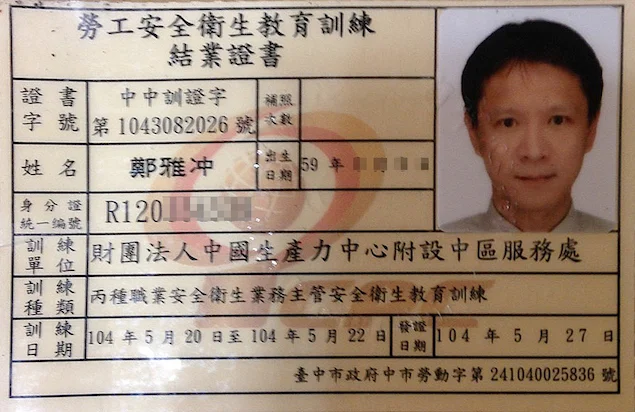 勞工安全衛生教育訓練
結業證書
證書字號 中中訓證字第 1043082026 號 補照次數
姓名 鄭雅冲 出生日期 59 年
身分證統一編號 R120
訓練單位 財團法人中國生產力中心附設中區服務處
訓練種類 丙種職業安全衛生業務主管安全衛生教育訓練
訓練日期 104 年 5 月 20 日至 104 年 5 月 22 日 發證日期 104 年 5 月 27 日
臺中市政府中市勞動字第 241040025836 號